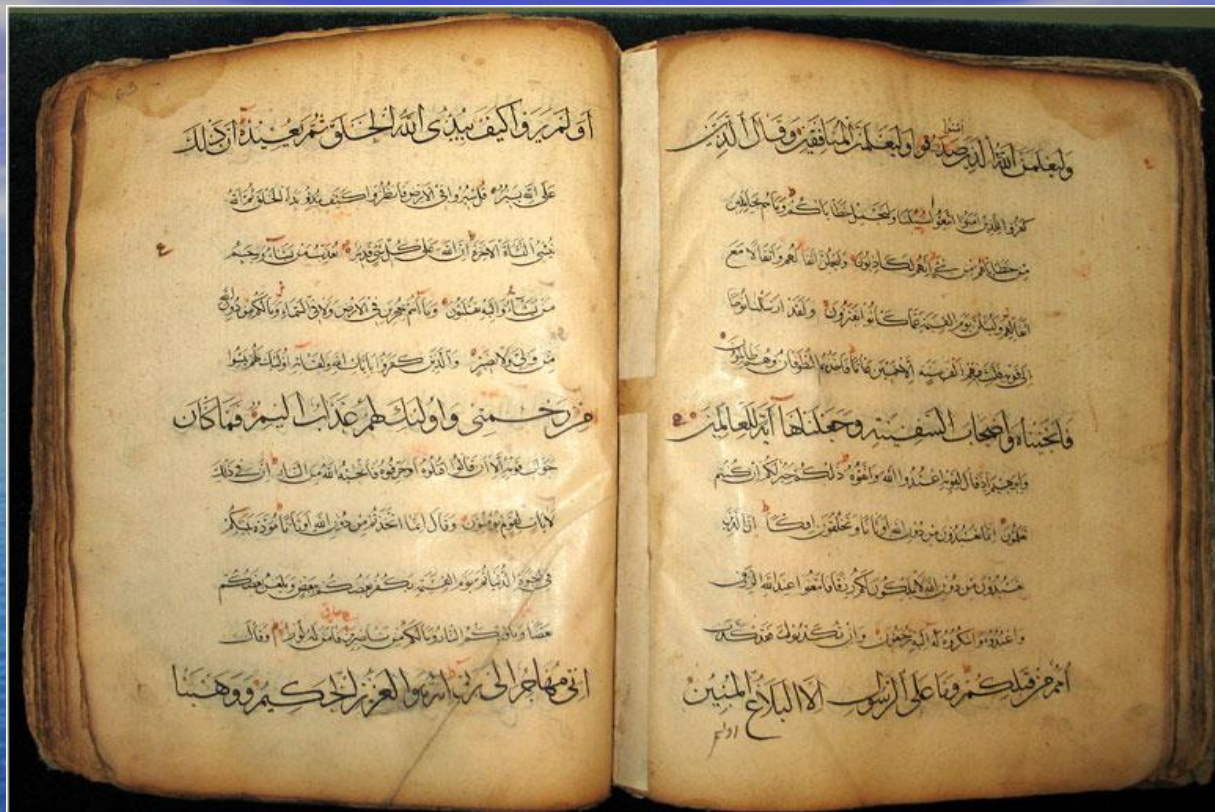 امنوا
وليعلمن الله الذين صدقوا وليعلمن المنافقين وقال الذين
كفروا للذين امنوا اتبعوا سبيلنا ولنحمل خطاياكم وما هم بحاملين
من خطاياهم من شئ انهم لكاذبون وليحملن اثقالهم واثقالا مع
اثقالهم وليسئلن يوم القيمة عما كانوا يفترون ولقد ارسلنا نوحا
الى قومه فلبث فيهم الف سنة الا خمسين عاما فاخذهم الطوفان وهم ظالمون
فانجيناه واصحاب السفينة وجعلناها آية للعالمين
وابرهيم اذ قال لقومه اعبدوا الله واتقوه ذلكم خير لكم ان كنتم
تعلمون انما تعبدون من دون الله اوثانا وتخلقون افكا ان الذين
تعبدون من دون الله لا يملكون لكم رزقا فابتغوا عند الله الرزق
واعبدوه واشكروا له اليه ترجعون وان تكذبوا فقد كذب
امم من قبلكم وما على الرسول الا البلاغ المبين
اولم
اولم يروا كيف يبدئ الله الخلق ثم يعيده ان ذلك
على الله يسير قل سيروا في الارض فانظروا كيف بدأ الخلق ثم الله
ينشئ النشأة الآخرة ان الله على كل شئ قدير يعذب من يشاء ويرحم
من يشاء واليه تقلبون وما انتم بمعجزين في الارض ولا في السماء وما لكم من دون الله
من ولي ولا نصير والذين كفروا بآيات الله ولقائه اولئك يئسوا
من رحمتي واولئك لهم عذاب اليم فما كان
جواب قومه الا ان قالوا اقتلوه او حرقوه فانجيه الله من النار ان في ذلك
لآيات لقوم يؤمنون وقال انما اتخذتم من دون الله اوثانا مودة بينكم
في الحيوة الدنيا ثم يوم القيمة يكفر بعضكم ببعض ويلعن بعضكم
بعضا وماويكم النار وما لكم من ناصرين فامن له لوط وقال
اني مهاجر الى ربي انه هو العزيز الحكيم ووهبنا